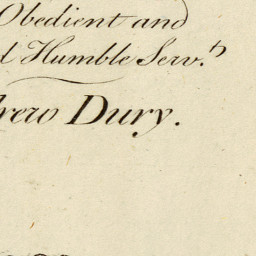 Obedient and
d Humble Serv.t
drew Dury.